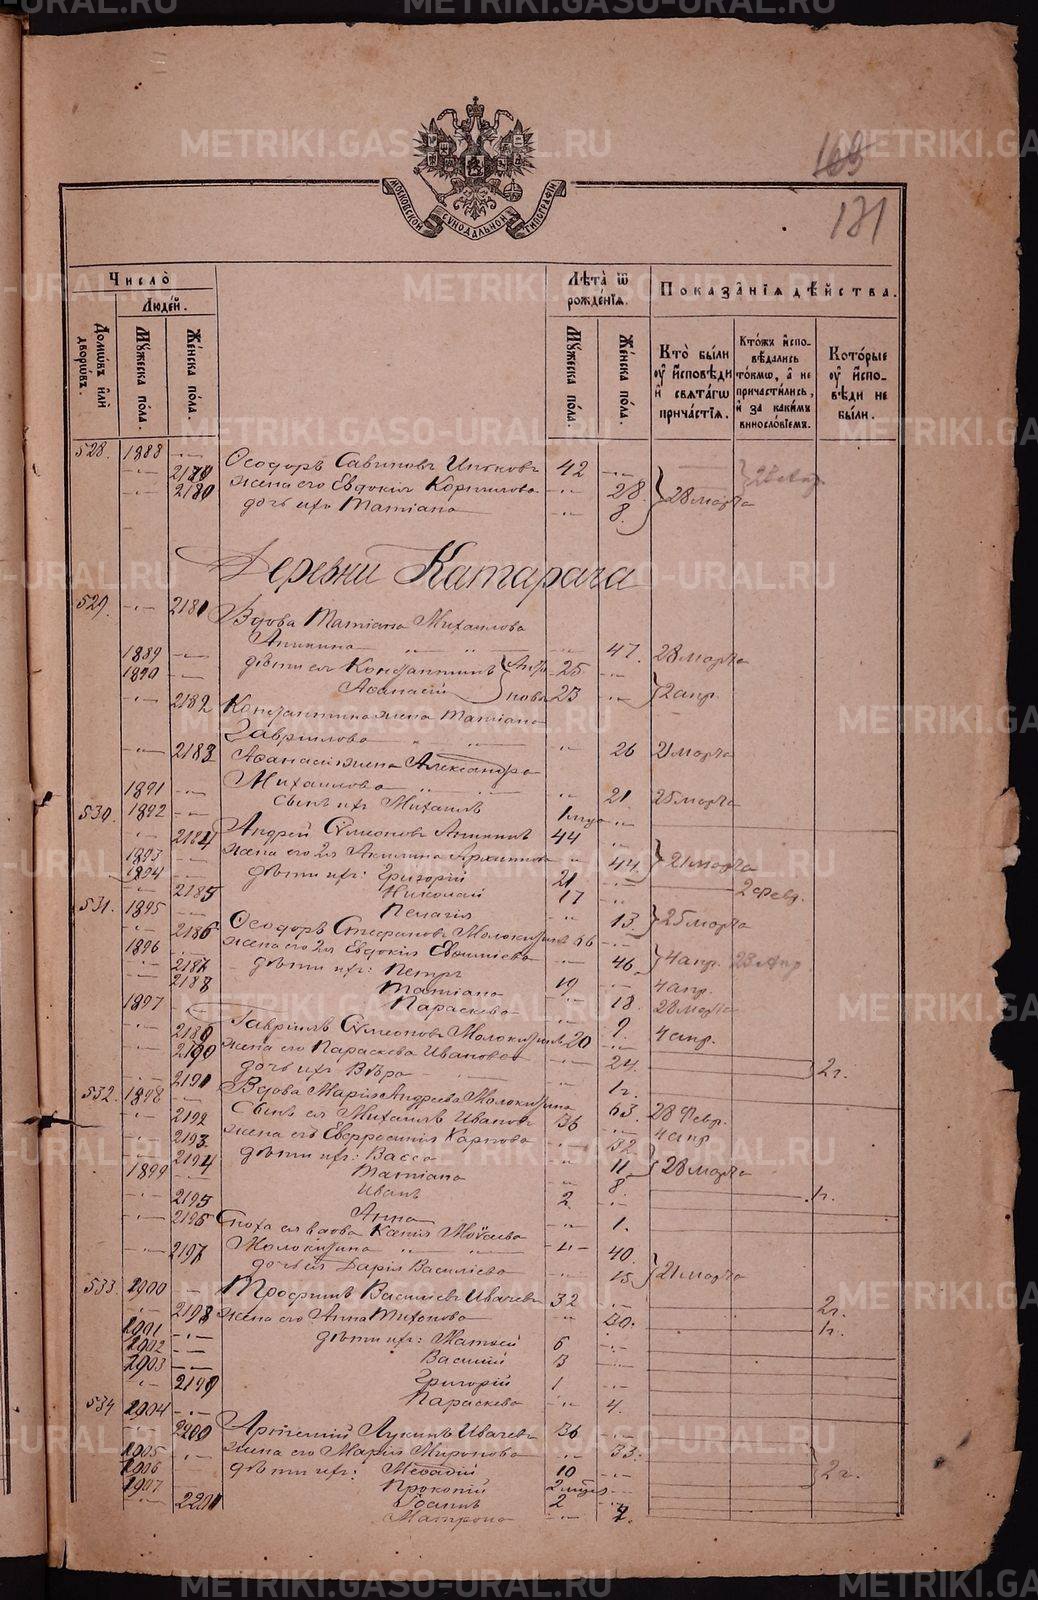 165
131
МОСКОВСКОЙ СѴНОДАЛЬНОЙ ТИПОГРАФІИ
Число̀
Людє́й.
Домѡ́въ и҆лѝ дворѡ́въ.
Мꙋ́жеска по́ла.
Же́нска по́ла.
Лѣ́та ѿ рожде́нїѧ.
Мꙋ́жеска по́ла.
Же́нска по́ла.
Показа̑нїѧ дѣ́йства.
Кто̀ бы́ли оу҆ и҆сповѣ́ди и҆ свѧта́гѡ прича́стїѧ.
Кто́жъ и҆сповѣ́дались то́кмѡ, а҆ не причасти́лись, и҆ за каки́мъ виносло́вїемъ.
Кото́рые оу҆ и҆сповѣ́ди не бы́ли.
528. 1888 Ѳеодоръ Савиновъ 42
2179 жена его Евдокія Корнилова 28 28 марта
2180 дочь ихъ Татіана 8.
Деревни Катарача
529. 2181 Вдова Татіана Михаилова
Аникина 47. 28 марта
1889 дѣти ея Константинъ 25
1890 Аѳанасій 23 2 апр.
2182 Константина жена Татіана
Гаврилова 26 21 марта
2183 Аѳанасія жена Александра
Михаилова 21 25 марта
1891 сынъ ихъ Михаилъ
530. 1892 Андрей Сѵмеоновъ Аникинъ 44
2184 жена его 2я Акилина Архипова 44 21 марта
1893 дѣти ихъ: Григорій 21
1894 Николай 17 2 февр.
2185 Пелагія 13 25 марта
531. 1895 Ѳеодоръ Стефановъ Молокитинъ 66
2186 жена его 2я Евдокія Евѳиміева 46 4 апр. 23 Апр.
1896 дѣти ихъ: Петръ 19 4 апр.
2187 Татіана 18 28 марта
2188 Параскева 4 апр.
1897 Гавріилъ Сѵмеоновъ Молокитинъ 20
2189 жена его Параскева Иванова 24 2 г.
2190 дочь ихъ Вѣра 1 г.
532. 2191 Вдова Марія Андреева Молокитина 63 28 Февр.
1898 Сынъ ея Михаилъ Ивановъ 36 4 апр
2192 жена его Евфросинія Карпова 32
2193 дѣти ихъ: Васса 11 28 марта
2194 Татіана 8
1899 Иванъ 2
2195 Анна 1.
2196 Сноха ея вдова Ксенія Моѵсеева
Молокитина 40.
2197 дочь ея Дарія Василіева 15 21 марта
533. 1900 Трофимъ Василіевъ Ивачевъ 32
2198 жена его Анна Тихонова 30. 2 г.
1901 дѣти ихъ: Матѳей 6
1902 Василій 3
1903 Григорій 1
2199 Параскева 4.
534 1904 Артемій Лукинъ Ивачевъ 36
2200 жена его Марія Миронова 33.
1905 дѣти ихъ: 10 2 г.
1906 Прокопій
1907 Іоаннъ 2
2201 Матрона
METRIKI.GASO-URAL.RU